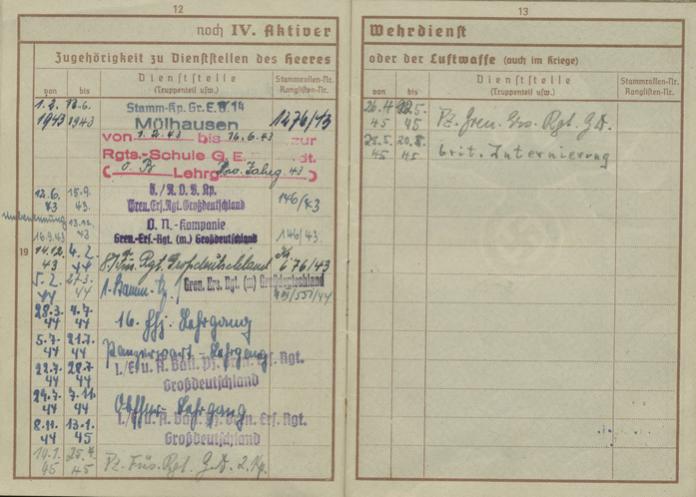 12
noch IV. Aktiver
Zugehörigkeit zu Dienststellen des Heeres
von
bis
Dienststelle
(Truppenteil usw.)
Stammrollen-Nr.
Ranglisten-Nr.
1.2. 16.6.
1943 1943
Stamm-Kp. Gr.E. 14
Mülhausen
1276/43
von 1.2.43 bis 16.6.43 zur
Rgts.-Schule G.E. dt.
Lehrg
12.6. 15.9.
43 43.
Gren.Ers.Rgt. Großdeutschland
146/43
16.9.43 13.12. 43
O.N.-Kompanie
Gren.-Ers.-Rgt. (m.) Großdeutschland
146/43.
19
14.12. 4.2.
43 44
Füs. Rgt. Großdeutschland
676/43
5.2. 27.3.
44 44
Gren. Ers. Rgt. (m) Großdeutschland
28.3. 4.7.
44 44
16. Lehrgang
5.7. 21.7.
44 44
Panzerwart-Lehrgang
22.7. 28.7.
44 44
I./E. u. A. Batl. Pz. Gren. Ers. Rgt.
Großdeutschland
29.7. 7.11.
44 44
Lehrgang
8.11. 13.1.
44 45
I./E. u. A. Batl. Pz. Gren. Ers. Rgt.
Großdeutschland
25.4.
45 45
Pz. Füs. Rgt. G.D. 2. Kp.
13
Wehrdienst
oder der Luftwaffe (auch im Kriege)
von
bis
Dienststelle
(Truppenteil usw.)
Stammrollen-Nr.
Ranglisten-Nr.
26.4
45 45
Pz. Gren. Ers. Rgt. G.D.
45 45
brit. Internierung